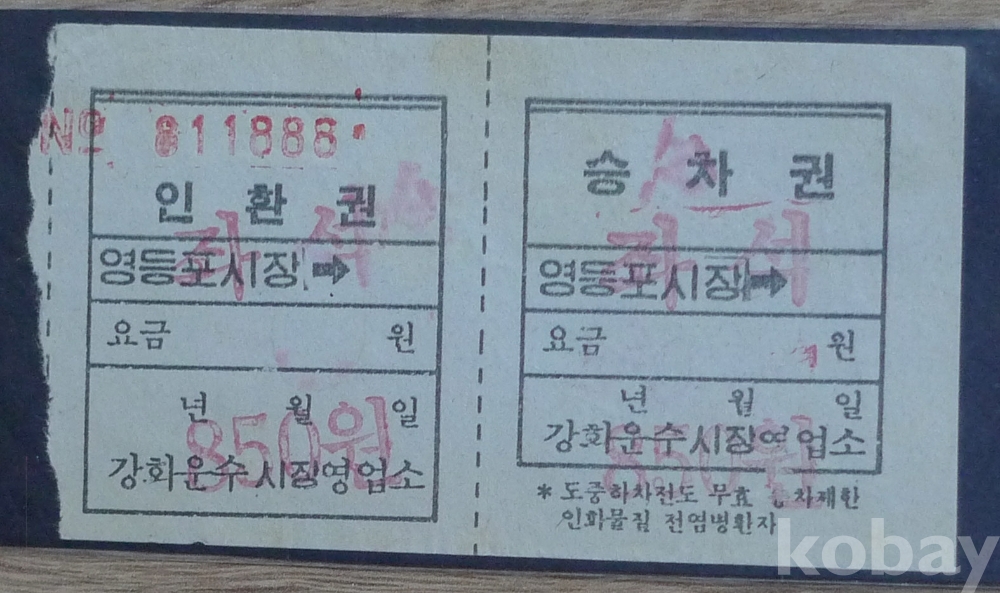 No 811888
인 환 권
좌 석
영등포시장 ➡
요금 원
년 월 일
850원
강화운수시장영업소
승 차 권
좌 석
영등포시장➡
요금 원
년 월 일
강화운수시장영업소
850원
* 도중하차전도 무효 차제한
인화물질 전염병환자
kobay